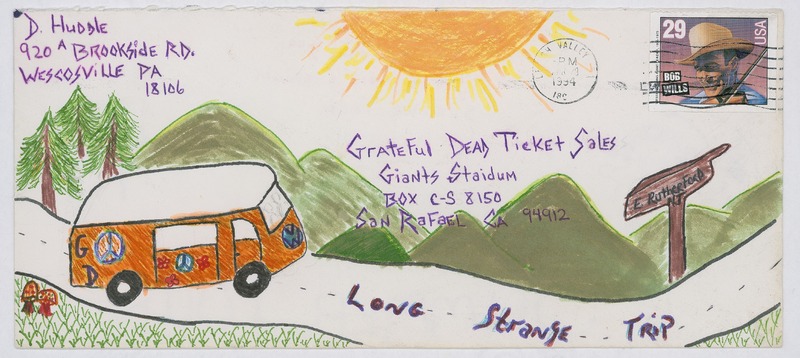 D. Hubble
920 A Brookside RD.
Wescosville PA
18106
VALLEY
PM
1994
29
USA
BOB
WILLS
Grateful Dead Ticket Sales
Giants Staidum
BOX C-S 8150
San Rafael CA 94912
E. Rutherford
NJ
G
D
Long Strange Trip